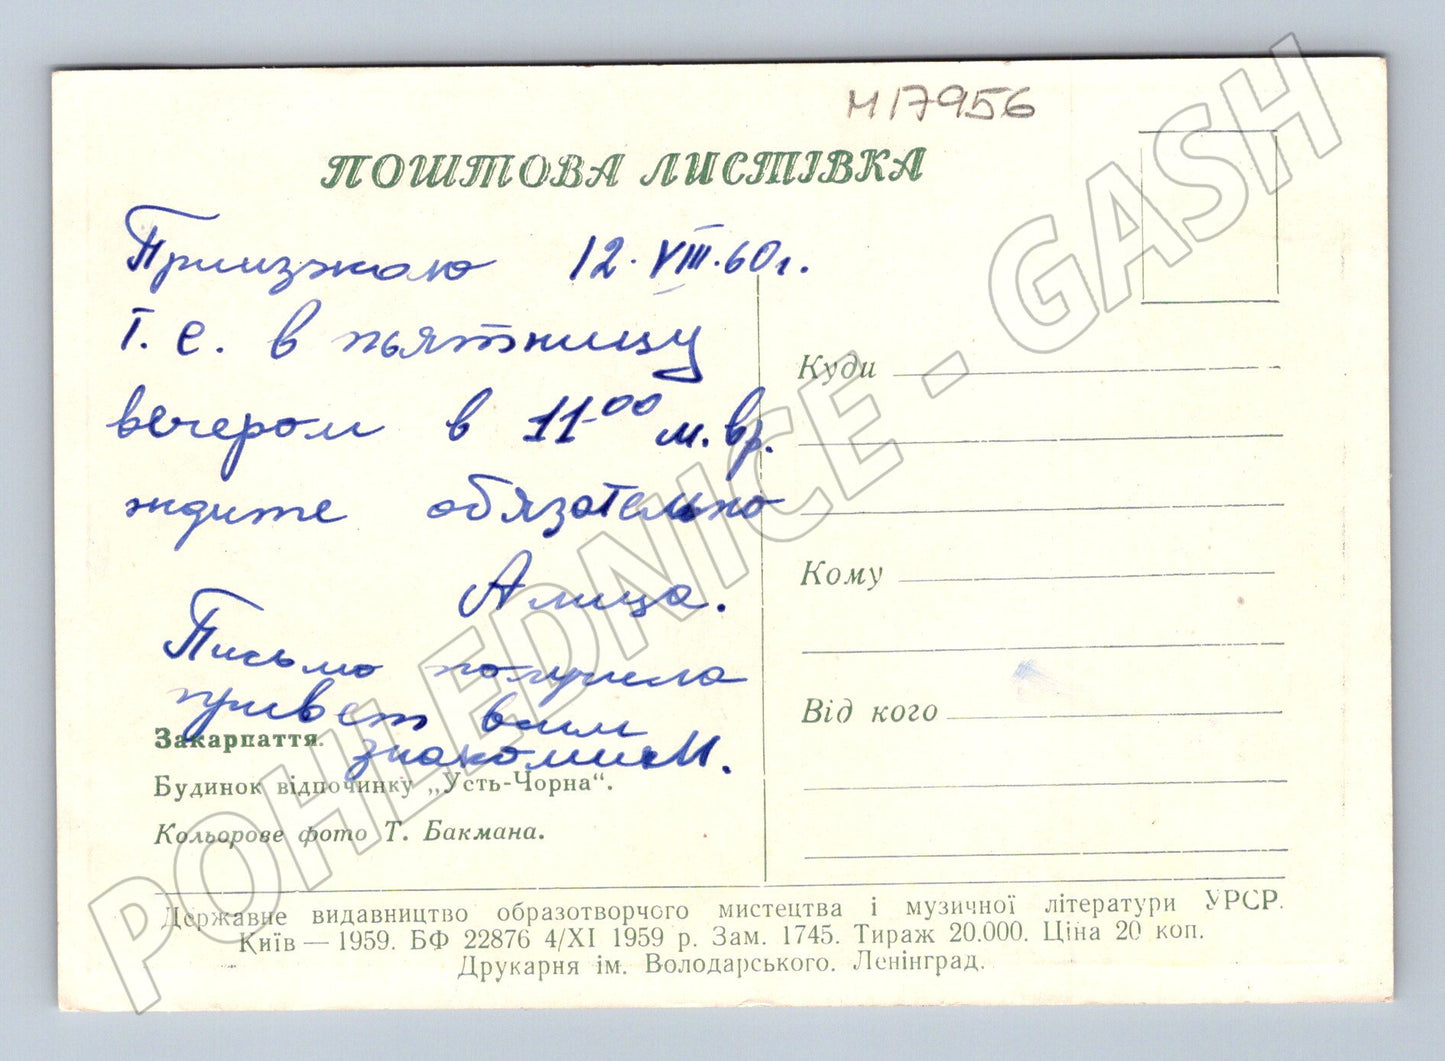 Н17956
ПОШТОВА ЛИСТІВКА
Приизжаю 12.VIII.60г.
т. е. в пьятницу
вечером в 11-00 м. вр.
ждите обязательно
Алица.
Письмо получила
привет всим
знакомим.
Закарпаття.
Будинок відпочинку „Усть-Чорна“.
Кольорове фото Т. Бакмана.
Куди
Кому
Від кого
Державне видавництво образотворчого мистецтва і музичної літератури УРСР.
Київ — 1959. БФ 22876 4/XI 1959 р. Зам. 1745. Тираж 20.000. Ціна 20 коп.
Друкарня ім. Володарського. Ленінград.
POHLEDNICE - GASH